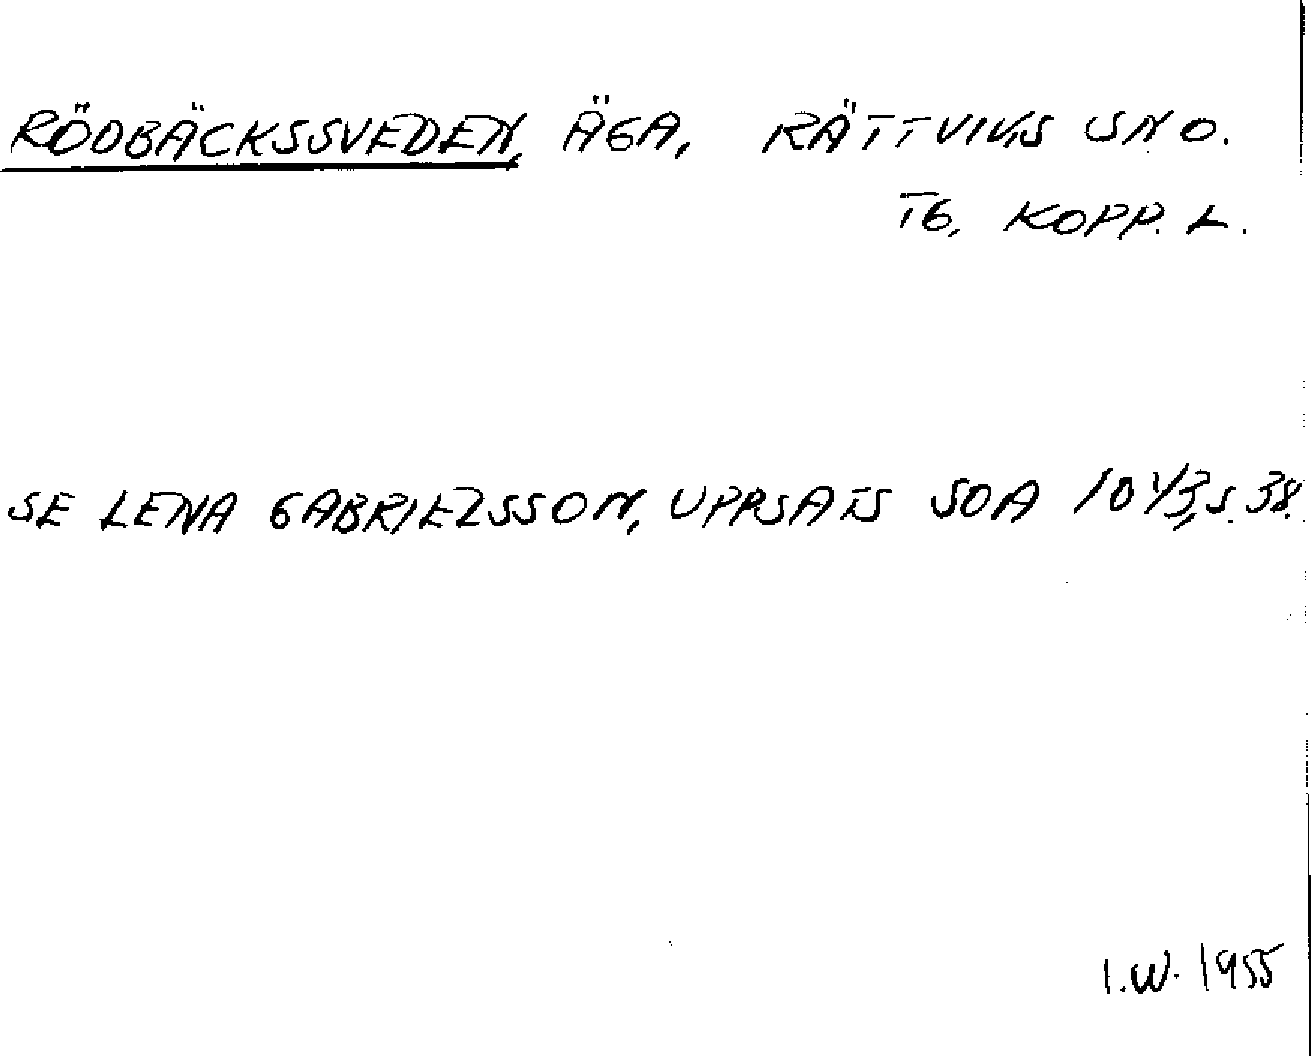 RÖDBÄCKSSVEDEN, ÄGA, RÄTTVIKS SN O.
TG, KOPP. L.
SE LENA GABRIELSSON, UPPSATS SOA 1013, S. 38.
I.W. 1955